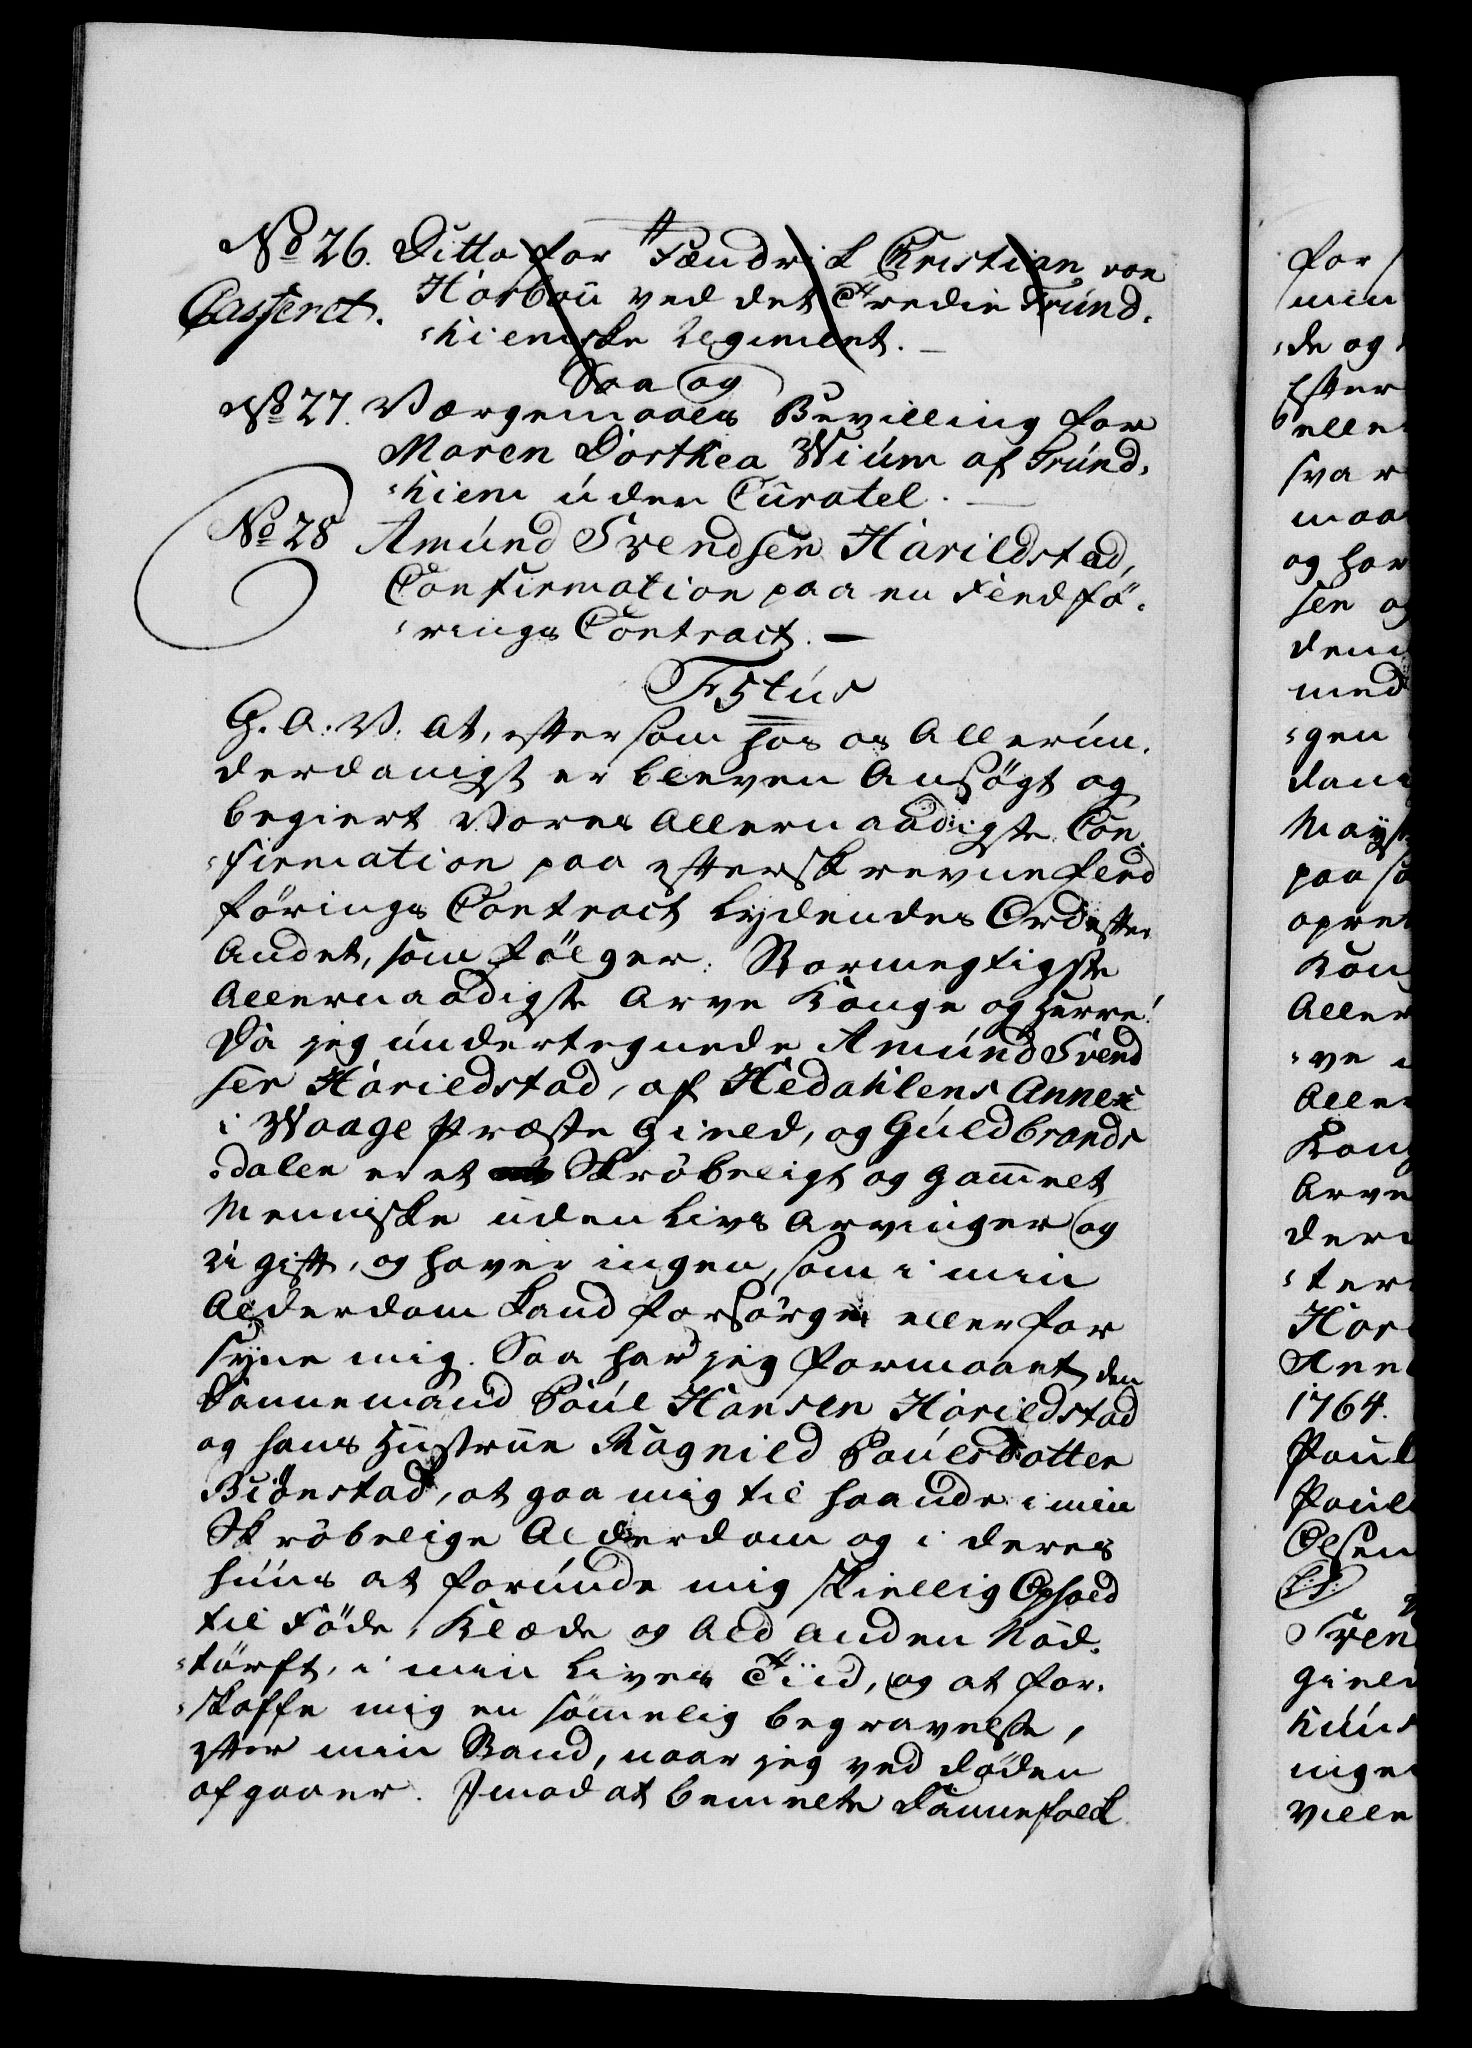 No 26. Ditto for Fændrik Christian von
Casseret. Harboü ved det Tredie Trund-
-hiemske Regiment. —
Saa og
No 27. Værgemaals Bevilling for
Maren Dorthea Wium af Trund-
-hiem uden Curatel. —
No 28 Amund Svendsen Harildstad,
Confirmation paa en Fledfö-
-rings Contract. —
Fr 5tus
G. A. V. at, eftersom hos os Allerun-
derdanigst er bleven Ansögt og
begiert Vores Allernaadigste Con-
-firmation paa efterskrevne fled
förings Contract lydendes Ord efter
Andet, som fölger: Stormegtigste
Allernaadigste Arve Konge og Herre!
Da jeg undertegnede Amund Svend
sen Harildstad, af Hedahlens Annex
i Waage Præste Gield, og Guldbrands
-dalen er et Skröbeligt og gammelt
Menniske uden Livs Arvinger og
Ugift, og haver ingen, som i min
Alderdom kand forsörge eller for
syne mig. Saa har jeg formaaet den
Dannemand Poul Hansen Harildstad
og hans Hustrue Ragnild Poulsdotter
Biönstad, at gaa mig til haande i min
Skröbelige Alderdom og i deres
huus at forunde mig skiellig Ophold
til Föde, Klæde og Ald anden Nöd-
-törft, i min Lives Tiid, og at for-
-skaffe mig en sömmelig begravelse,
efter min Stand, naar jeg ved döden
afgaaer. Imod at bemelte Dannefolck
for
min
-de og
Efter
elle
svar
maa
og har
sen og
dem
med
-gen
dan
Mayst
paa sa
opret
Kon
Aller
-ve
Aller
Kong
Arve
der
-ter
Har
Ann
1764.
Poul
Poul
Olsen
(L.S.)
Sven
giel
huus
inge
ville